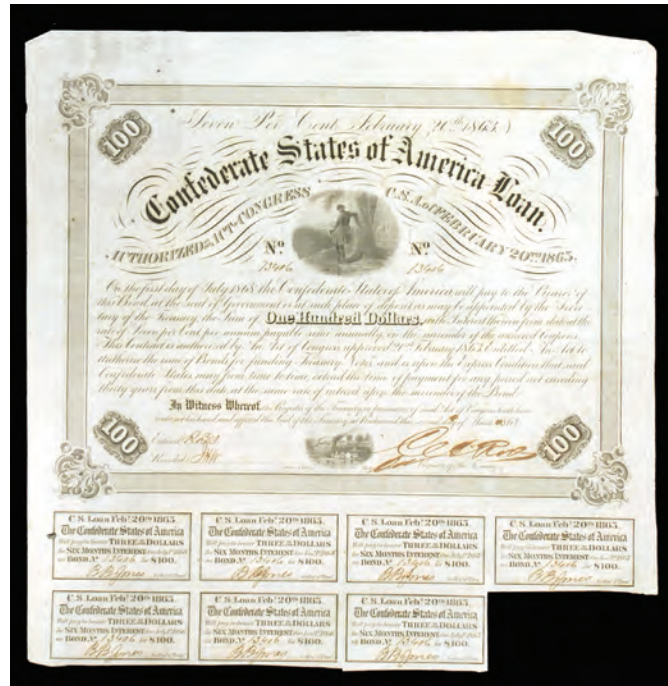 100
100
Seven Per Cent. February 20th 1863.
Confederate States of America Loan.
AUTHORIZED BY ACT OF CONGRESS C.S.A. of FEBRUARY 20TH 1863.
No No
13406 13406
On the first day of July 1868 the Confederate States of America will pay to the Bearer of
this Bond, at the seat of Government or at such place of deposit as may be appointed by the Secre-
tary of the Treasury, the Sum of One Hundred Dollars, with Interest thereon from date at the
rate of Seven per Cent per annum payable semi annually, on the surrender of the annexed Coupons.
This Contract is authorized by the Act of Congress approved 20th February 1863 Entitled "An Act to
authorize the issue of Bonds for funding Treasury Notes" and is upon the Express Condition that said
Confederate States may from time to time, extend the time of payment for any period not exceeding
thirty years from this date at the same rate of interest upon the surrender of the Bond.
In Witness Whereof, the Register of the Treasury in pursuance of said Act of Congress hath here-
unto set his hand and affixed the Seal of the Treasury at Richmond this of 1863
Entered
Recorded
Register of the Treasury
100
100
C. S. Loan Feby. 20th 1863.
The Confederate States of America
Will pay to bearer THREE 50/100 DOLLARS
for SIX MONTHS INTEREST due
on BOND No. 13406 for $100.
C. S. Loan Feby. 20th 1863.
The Confederate States of America
Will pay to bearer THREE 50/100 DOLLARS
for SIX MONTHS INTEREST due
on BOND No. 13406 for $100.
C. S. Loan Feby. 20th 1863.
The Confederate States of America
Will pay to bearer THREE 50/100 DOLLARS
for SIX MONTHS INTEREST due
on BOND No. 13406 for $100.
C. S. Loan Feby. 20th 1863.
The Confederate States of America
Will pay to bearer THREE 50/100 DOLLARS
for SIX MONTHS INTEREST due
on BOND No. 13406 for $100.
C. S. Loan Feby. 20th 1863.
The Confederate States of America
Will pay to bearer THREE 50/100 DOLLARS
for SIX MONTHS INTEREST due
on BOND No. 13406 for $100.
C. S. Loan Feby. 20th 1863.
The Confederate States of America
Will pay to bearer THREE 50/100 DOLLARS
for SIX MONTHS INTEREST due
on BOND No. 13406 for $100.
C. S. Loan Feby. 20th 1863.
The Confederate States of America
Will pay to bearer THREE 50/100 DOLLARS
for SIX MONTHS INTEREST due
on BOND No. 13406 for $100.